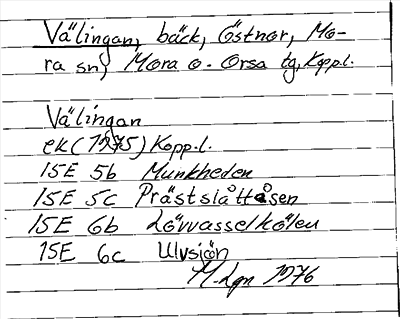 Välingan, bäck, Östnor, Mo-
ra sn, Mora o. Orsa tg, Kopp.l.
Välingan
ek (1975) Kopp.l.
15E 5b Munkheden
15E 5c Prästslåttåsen
15E 6b Lövvasselkölen
15E 6c Ulvsjön
1976